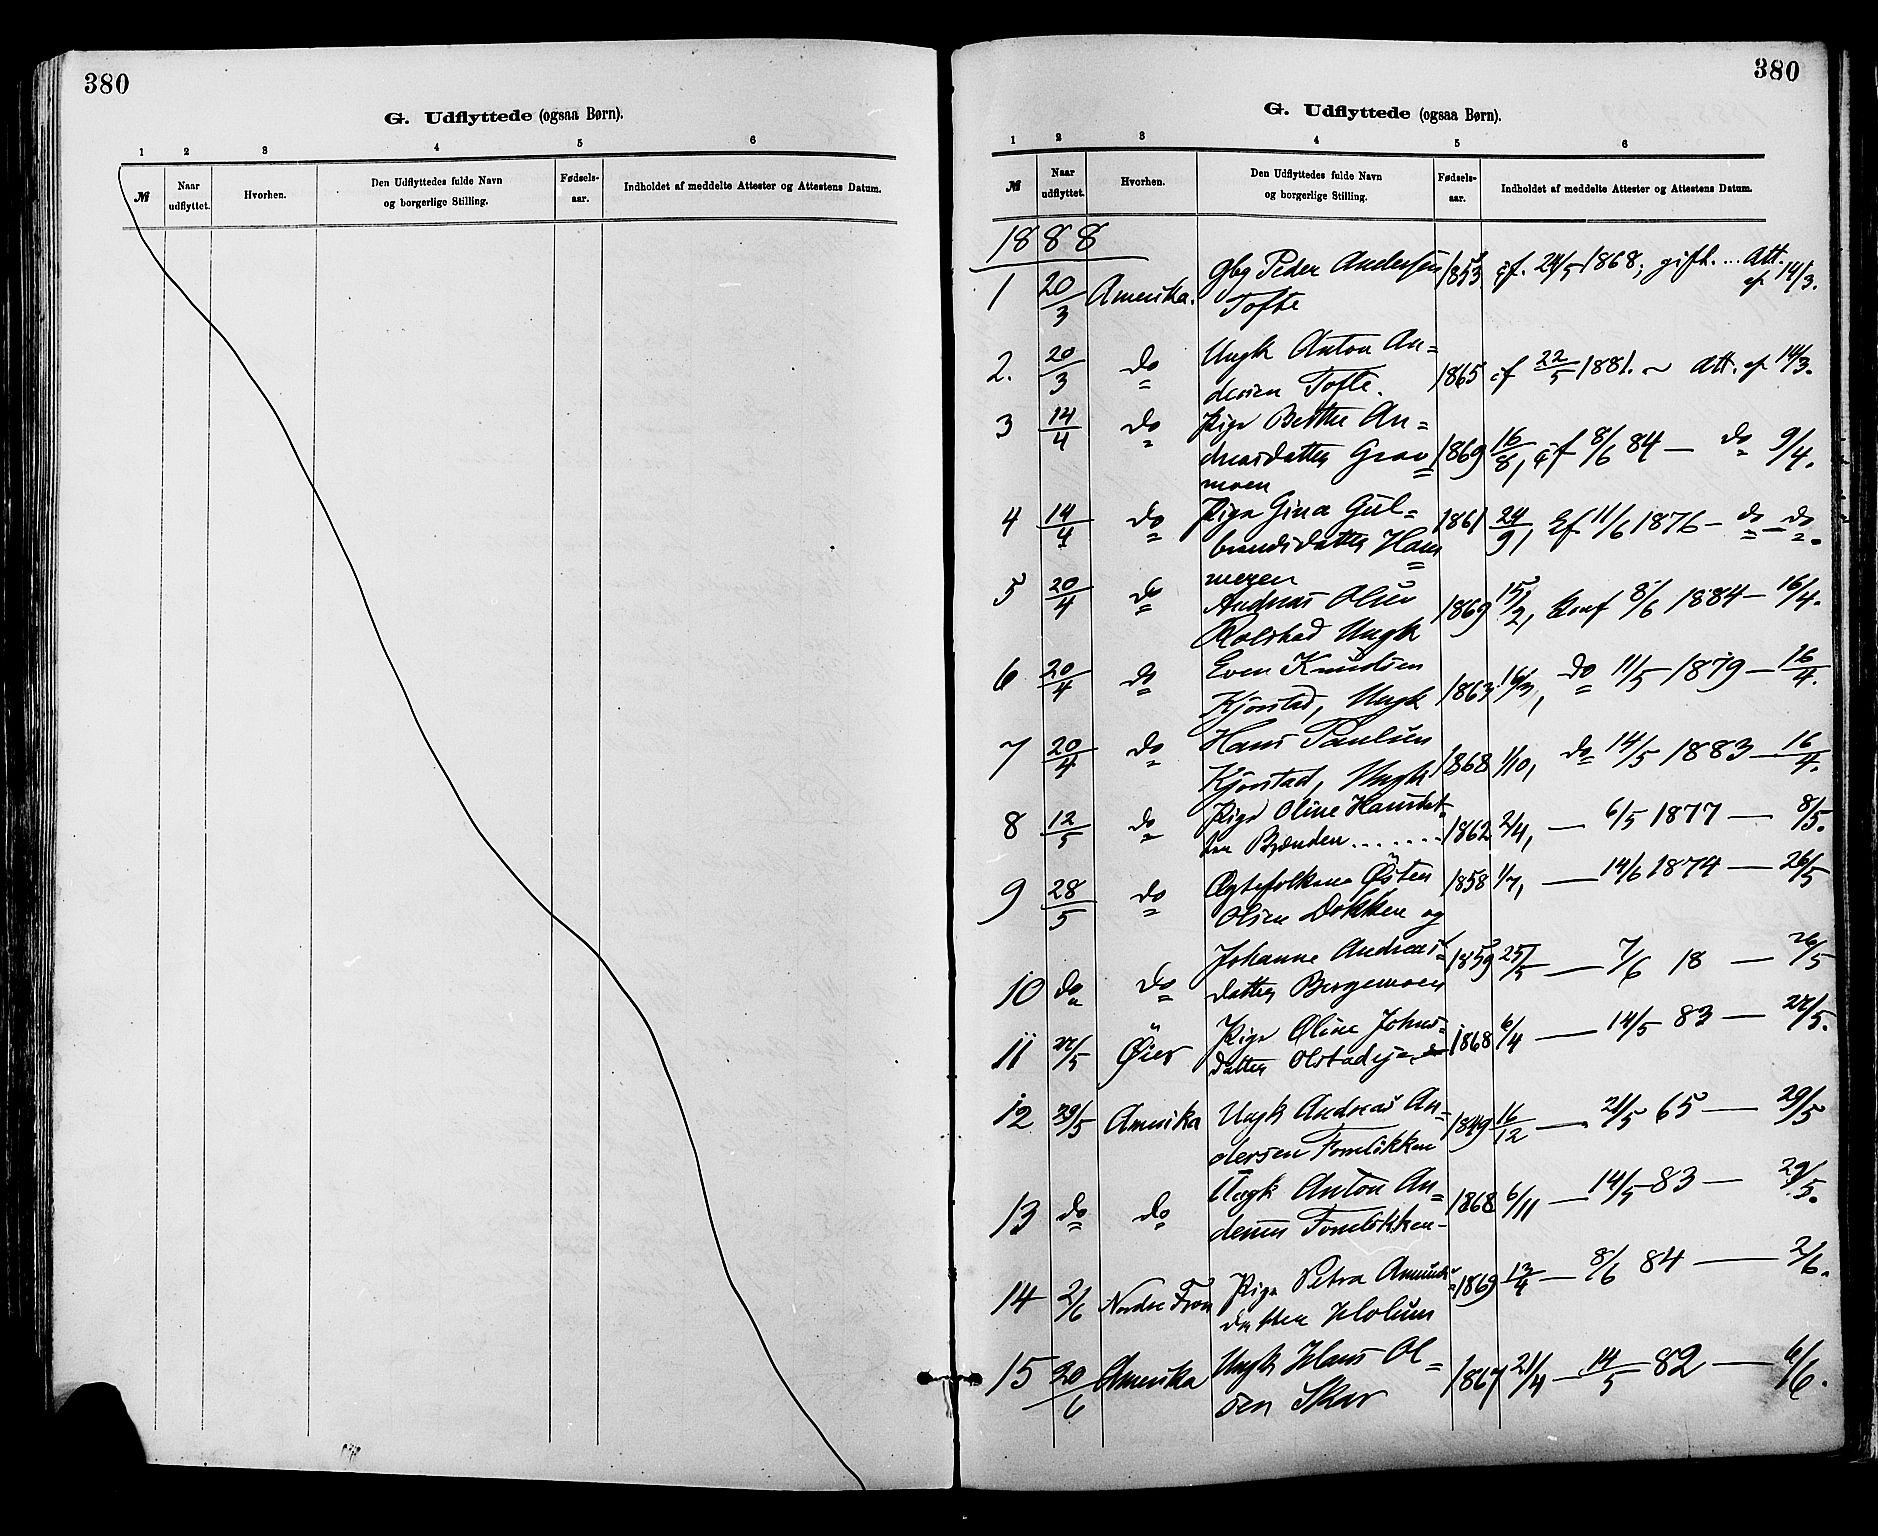 380
G. Udflyttede (ogsaa Børn).
1 2 3 4 5 6
№ Naar udflyttet. Hvorhen. Den Udflyttedes fulde Navn og borgerlige Stilling. Fødsels-aar. Indholdet af meddelte Attester og Attestens Datum.
380
G. Udflyttede (ogsaa Børn).
1 2 3 4 5 6
№ Naar udflyttet. Hvorhen. Den Udflyttedes fulde Navn og borgerlige Stilling. Fødsels-aar. Indholdet af meddelte Attester og Attestens Datum.
1888
1 20/3 Amerika. Gbg Peder Andersen 1853 cf. 24/5 1868; gift. ... Att.
Tofte af 14/3.
2. 20/3 do Ungk Anton An=
dersen Tofte. 1865 cf 22/5 1881. ~ Att. af 14/3.
3 14/4 do Pige Berthe An=
dreasdatter Grav= 1869 16/8, cf 8/6 84 — do 9/4.
moen
4 14/4 do Pige Gina Gul= 1861 24/9, Cf 11/6 1876 — do — do.
brandsdatter Ham=
meren
5 20/4 do Andreas Olsen 1869 15/2, Konf 8/6 1884 — 16/4.
Rolstad Ungk
6 20/4 do Even Knudsen
Kjorstad, Ungk 1863 16/3, do 11/5 1879 — 16/4.
7 20/4 do Hans Paulsen
Kjorstad, Ungk 1868 1/10, do 14/5 1883 — 16/4.
8 12/5 do Pige Oline Hansdat-
ter Brænden....... 1862 2/4, — 6/5 1877 — 8/5.
9 28/5 do Ægtefolkene Østen 1858 1/7, — 14/6 1874 — 26/5
Olsen Dokken og
Johanne Andreas= 1859 25/5 — 7/6 18 — 26/5
10 do do datter Bergemoen
11 22/5 Øier Pige Oline Johns= 1868 6/4 — 14/5 83 — 22/5.
datter
12 29/5 Amerika Ungk Andreas An= 1849 16/12 — 21/5 65 — 29/5
dersen Fonstikken
13 do do Ungk Anton An= 1868 6/11 — 14/5 83 — 29/5.
dersen Fonstikken -
14 2/6 Nordre Fron Pige Petra Amunds= 1869 13/4 — 8/6 84 — 2/6.
datter Holum
15 20/6 Amerika Ungk Hans Ol= 1867 21/4 — 14/5 82 — 6/6.
sen Skar